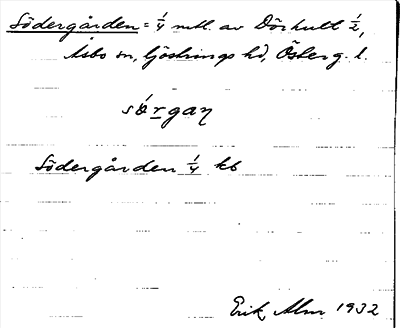 Södergården = 1/4 mtl. av Dörhult 1/2,
Asbo sn, Göstrings hd, Österg. l.
Södergården 1/4 kb
Erik Alm 1932